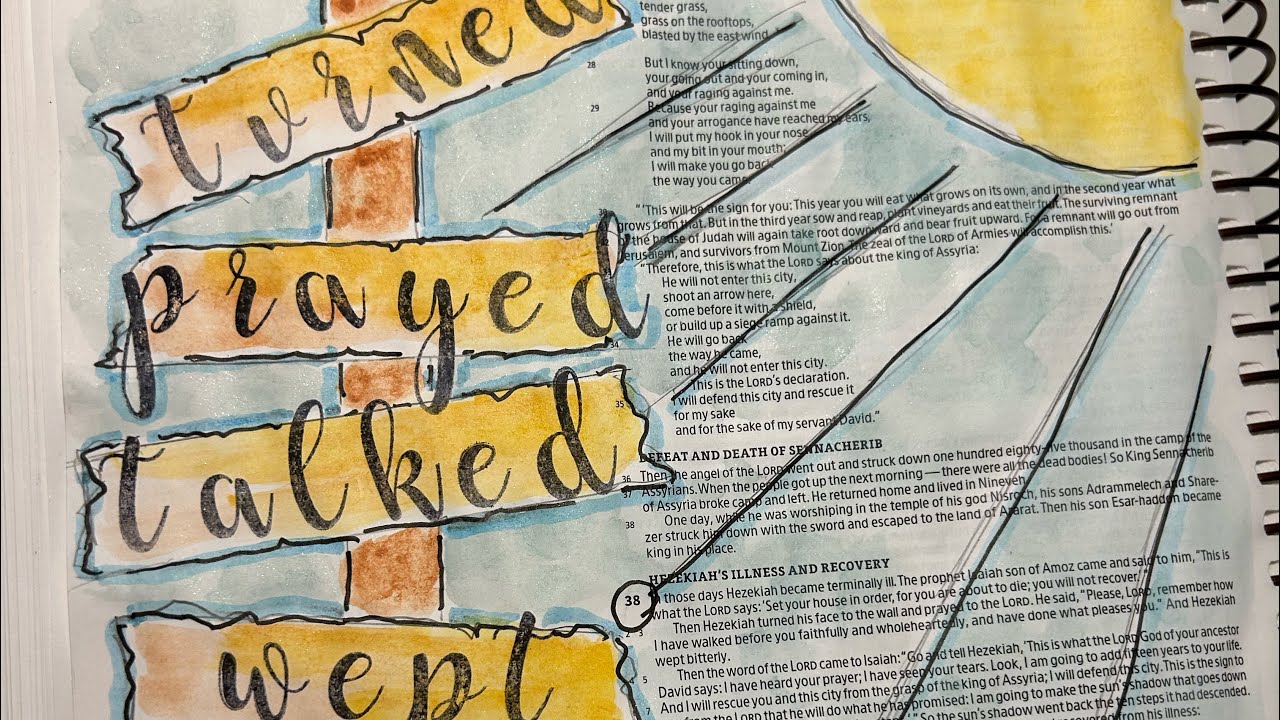 turned
prayed
talked
wept
tender grass,
grass on the rooftops,
blasted by the east wind.
28 But I know your sitting down,
your going out and your coming in,
and your raging against me.
29 Because your raging against me
and your arrogance have reached my ears,
I will put my hook in your nose
and my bit in your mouth;
I will make you go back
the way you came.
30 “‘This will be the sign for you: This year you will eat what grows on its own, and in the second year what
grows from that. But in the third year sow and reap, plant vineyards and eat their fruit. The surviving remnant
of the house of Judah will again take root downward and bear fruit upward. For a remnant will go out from
Jerusalem, and survivors from Mount Zion. The zeal of the LORD of Armies will accomplish this.’
“Therefore, this is what the LORD says about the king of Assyria:
He will not enter this city,
shoot an arrow here,
come before it with a shield,
or build up a siege ramp against it.
34 He will go back
the way he came,
and he will not enter this city.
This is the LORD’s declaration.
35 I will defend this city and rescue it
for my sake
and for the sake of my servant David.”
DEFEAT AND DEATH OF SENNACHERIB
36 Then the angel of the LORD went out and struck down one hundred eighty-five thousand in the camp of the
37 Assyrians. When the people got up the next morning — there were all the dead bodies! So King Sennacherib
of Assyria broke camp and left. He returned home and lived in Nineveh.
38 One day, while he was worshiping in the temple of his god Nisroch, his sons Adrammelech and Share-
zer struck him down with the sword and escaped to the land of Ararat. Then his son Esar-haddon became
king in his place.
HEZEKIAH’S ILLNESS AND RECOVERY
38 In those days Hezekiah became terminally ill. The prophet Isaiah son of Amoz came and said to him, “This is
what the LORD says: ‘Set your house in order, for you are about to die; you will not recover.’”
2 3 Then Hezekiah turned his face to the wall and prayed to the LORD. He said, “Please, LORD, remember how
I have walked before you faithfully and wholeheartedly, and have done what pleases you.” And Hezekiah
wept bitterly.
Then the word of the LORD came to Isaiah: “Go and tell Hezekiah, ‘This is what the LORD God of your ancestor
5 David says: I have heard your prayer; I have seen your tears. Look, I am going to add fifteen years to your life.
And I will rescue you and this city from the grasp of the king of Assyria; I will defend this city. This is the sign to
7 from the LORD that he will do what he has promised: I am going to make the sun’s shadow that goes down
So the sun’s shadow went back the ten steps it had descended.
from his illness: